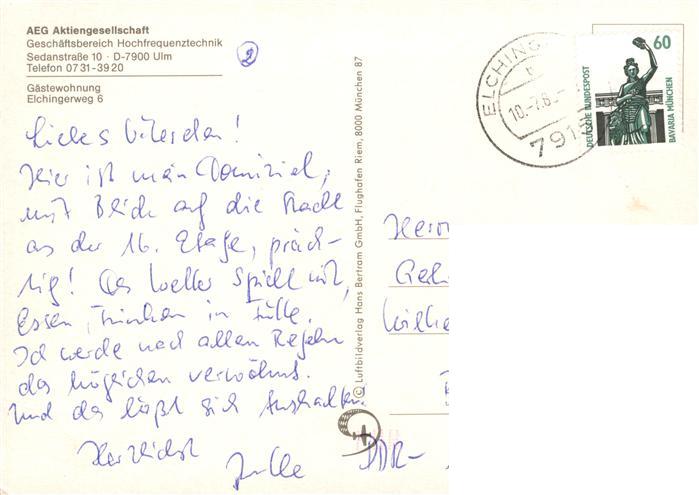 AEG Aktiengesellschaft
Geschäftsbereich Hochfrequenztechnik
Sedanstraße 10 · D-7900 Ulm
Telefon 07 31-39 20
Gästewohnung
Elchingerweg 6
2
Liebes
Hier ist mein Domizil,
mit Blick auf die Stadt
aus der 16. Etage, präch-
tig! Das Wetter spielt mit,
Essen, Trinken in Fülle.
Ich werde nach allen Regeln
des möglichen verwöhnt.
Und das läßt sich aushalten.
Herzlichst
© Luftbildverlag Hans Bertram GmbH, Flughafen Riem, 8000 München 87
ELCHING
b
10.-7.8
791
60
DEUTSCHE BUNDESPOST
BAVARIA MÜNCHEN
Herrn
DDR-